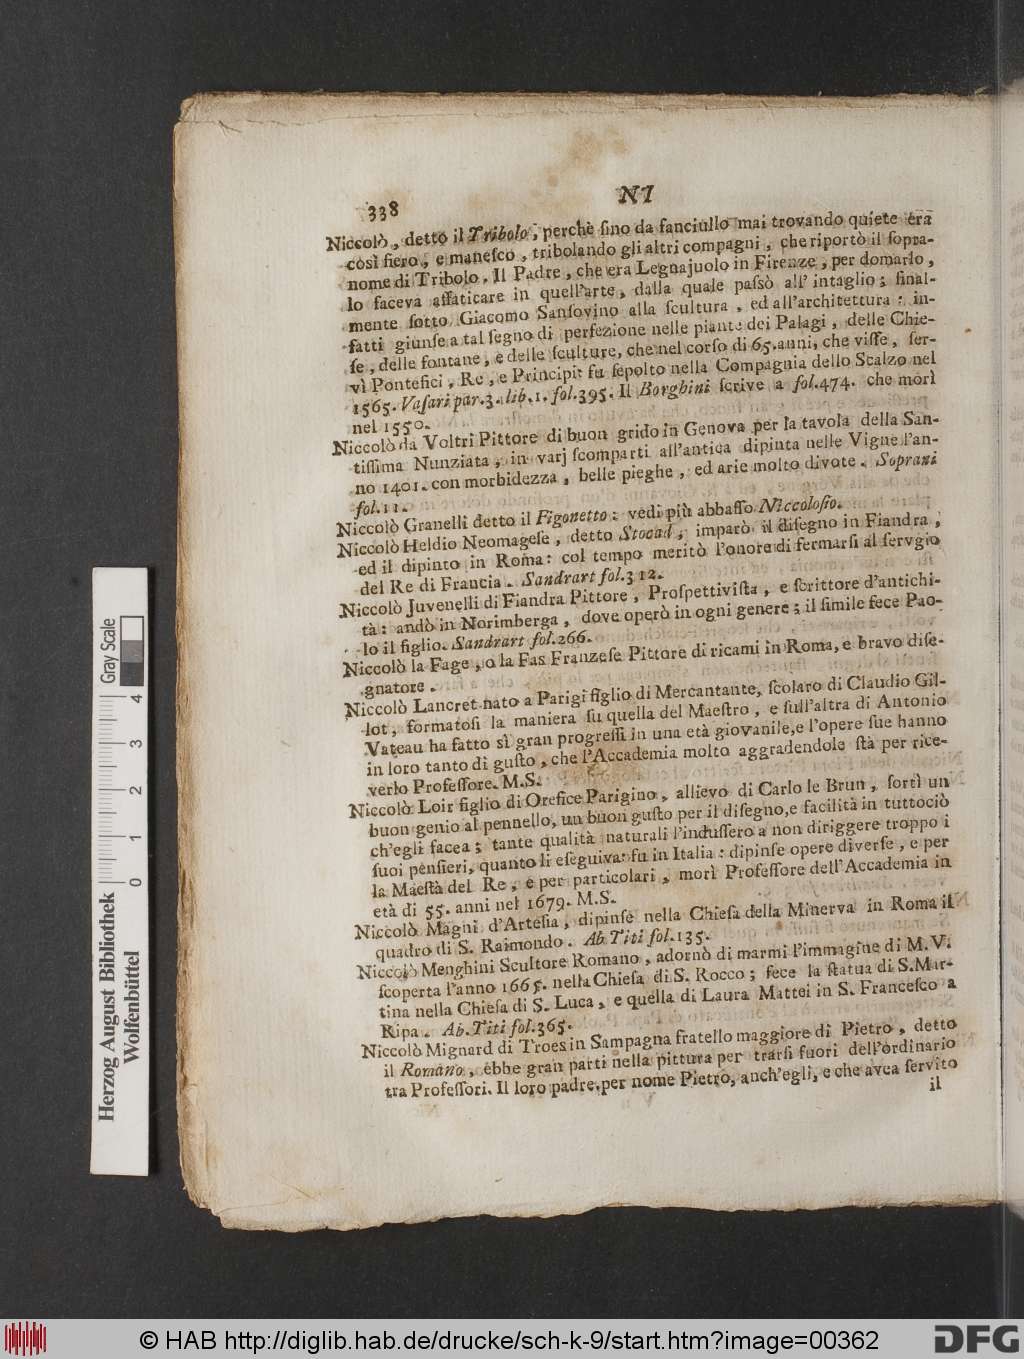 338 NI
Niccolò, detto il Tribolo, perchè ſino da fanciullo mai trovando quiete era
così fiero, e maneſco, tribolando gli altri compagni, che riportò il ſopra-
nome di Tribolo. Il Padre, che era Legnajuolo in Firenze, per domarlo,
lo faceva affaticare in quell'arte, dalla quale paſsò all' intaglio; final-
mente ſotto Giacomo Sanſovino alla ſcultura, ed all'architettura: in-
fatti giunſe a tal ſegno di perfezione nelle piante dei Palagi, delle Chie-
ſe, delle fontane, e delle ſculture, che nel corſo di 65. anni, che viſſe, ſer-
vì Pontefici, Re, e Principi: fu ſepolto nella Compagnia dello Scalzo nel
1565. Vaſari par. 3. lib. 1. fol. 395. Il Borghini ſcrive a fol. 474. che morì
nel 1550.
Niccolò da Voltri Pittore di buon grido in Genova per la tavola della San-
tiſſima Nunziata, in varj ſcomparti all'antica dipinta nelle Vigne l'an-
no 1401. con morbidezza, belle pieghe, ed arie molto divote. Soprani
fol. 11.
Niccolò Granelli detto il Figonetto: vedi più abbaſſo Niccoloſio.
Niccolò Heldio Neomageſe, detto Stocad, imparò il diſegno in Fiandra,
ed il dipinto in Roma: col tempo meritò l'onore di fermarſi al ſervgio
del Re di Francia. Sandrart fol. 312.
Niccolò Juvenelli di Fiandra Pittore, Proſpettiviſta, e ſcrittore d'antichi-
tà: andò in Norimberga, dove operò in ogni genere; il ſimile fece Pao-
lo il figlio. Sandrart fol. 266.
Niccolò la Fage, o la Fas Franzeſe Pittore di ricami in Roma, e bravo diſe-
gnatore.
Niccolò Lancret nato a Parigi figlio di Mercantante, ſcolaro di Claudio Gil-
lot, formatoſi la maniera ſu quella del Maeſtro, e ſull'altra di Antonio
Vateau ha fatto sì gran progreſſi in una età giovanile, e l'opere ſue hanno
in loro tanto di guſto, che l'Accademia molto aggradendole ſtà per rice-
verlo Profeſſore. M.S.
Niccolò Loir figlio di Orefice Parigino, allievo di Carlo le Brun, ſortì un
buon genio al pennello, un buon guſto per il diſegno, e facilità in tuttociò
ch'egli facea; tante qualità naturali l'induſſero a non diriggere troppo i
ſuoi penſieri, quanto li eſeguiva: fu in Italia: dipinſe opere diverſe, e per
la Maeſtà del Re, e per particolari, morì Profeſſore dell'Accademia in
età di 55. anni nel 1679. M.S.
Niccolò Magni d'Arteſia, dipinſe nella Chieſa della Minerva in Roma il
quadro di S. Raimondo. Ab. Titi fol. 135.
Niccolò Menghini Scultore Romano, adornò di marmi l'immagine di M.V.
ſcoperta l'anno 1665. nella Chieſa di S. Rocco; fece la ſtatua di S. Mar-
tina nella Chieſa di S. Luca, e quella di Laura Mattei in S. Franceſco a
Ripa. Ab. Titi fol. 365.
Niccolò Mignard di Troes in Sampagna fratello maggiore di Pietro, detto
il Romano, ebbe gran parti nella pittura per trarſi fuori dell'ordinario
tra Profeſſori. Il loro padre, per nome Pietro, anch'egli, e che avea ſervito
il
Herzog August Bibliothek
Wolfenbüttel
0 1 2 3 4
Gray Scale
© HAB http://diglib.hab.de/drucke/sch-k-9/start.htm?image=00362
DFG